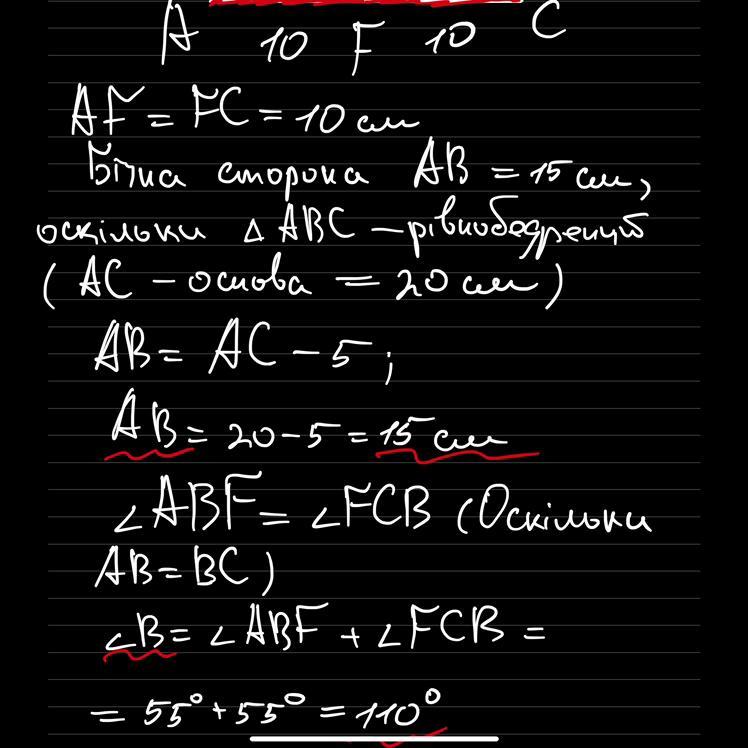 A 10 F 10 C
AF = FC = 10 см
Бічна сторона AB = 15 см,
оскільки Δ ABC – рівнобедрений
( AC – основа = 20 см )
AB = AC – 5 ;
AB = 20 – 5 = 15 см
∠ABF = ∠FCB (Оскільки
AB = BC )
∠B = ∠ABF + ∠FCB =
= 55° + 55° = 110°